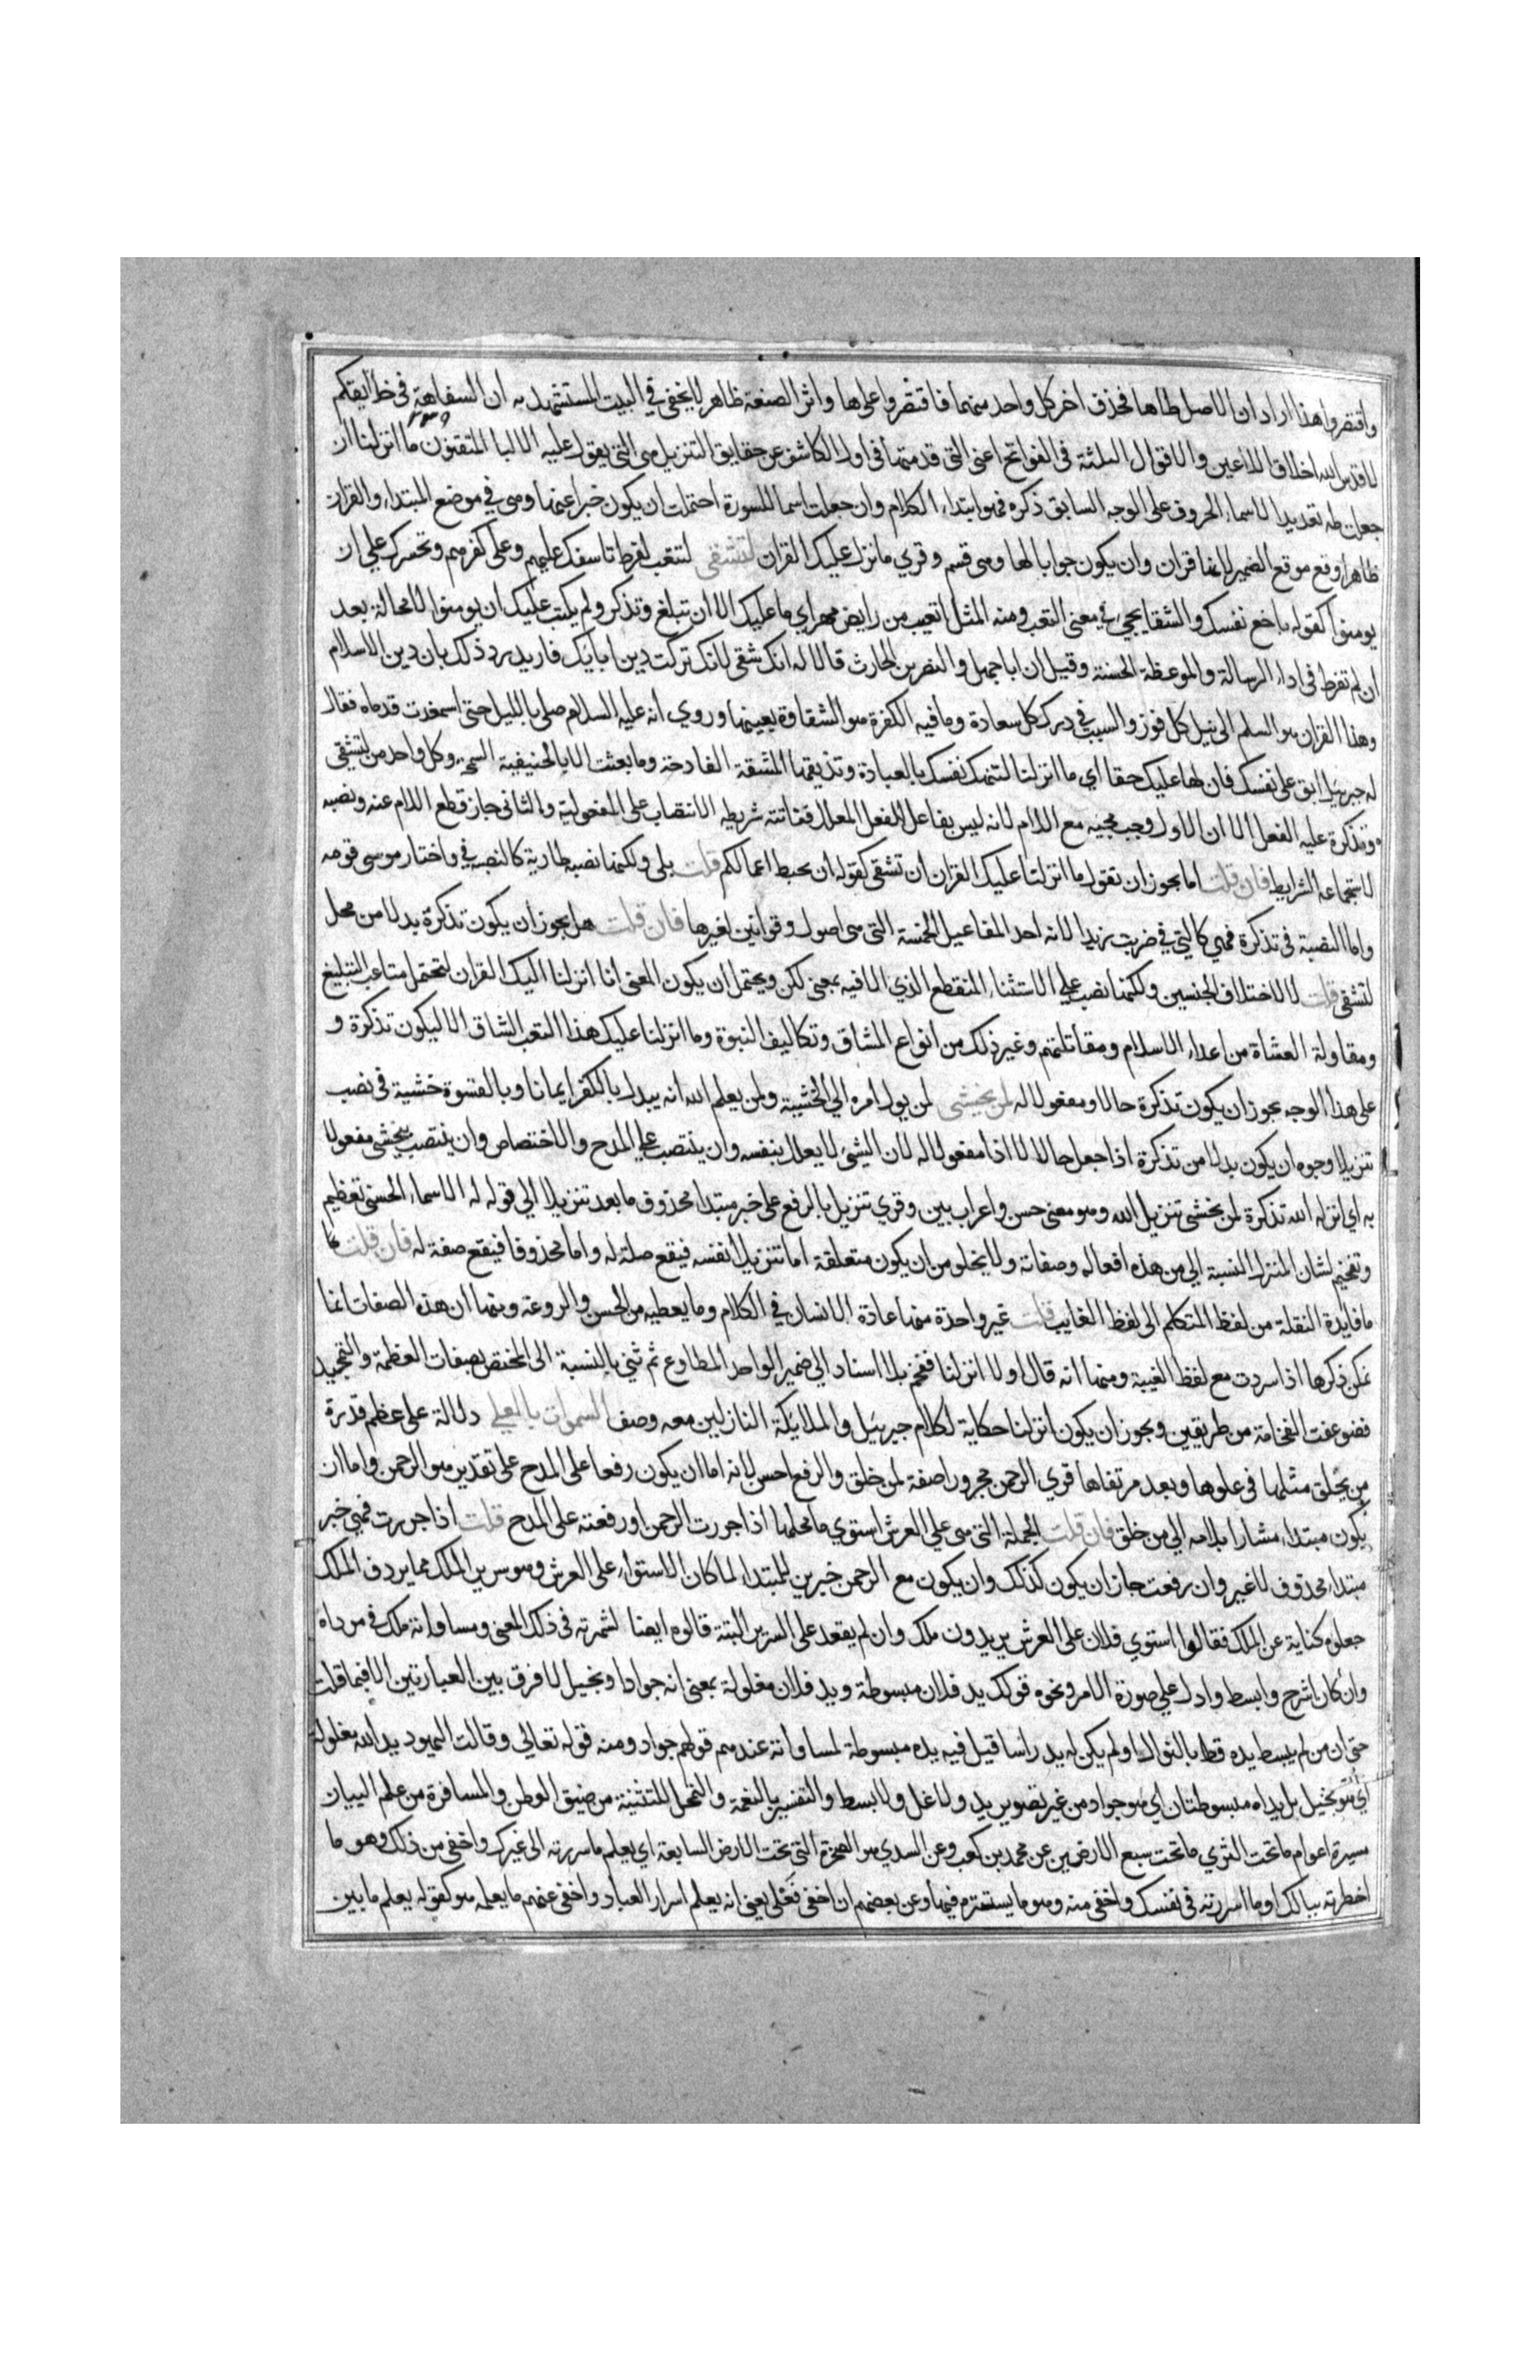 واقتصروا هذا اراد ان الاصل طاها فحذف اخر كل واحد منهما فاقتصروا على ها واثر الصنعة ظاهر لا يخفى في البيت المستشهد به ان السفاهة في خلايقكم
٢٣٩
لا قدس الله اخلاق الملاعين والاقوال الثلثة في الفواتح اعنى التي قدمتها في اول الكاشف عن حقايق التنزيل هي التي يعول عليه الالبا المتقنون ما انزلنا ان
جعلت طه تعديدا لاسماء الحروف على الوجه السابق ذكره فهو ابتداء الكلام وان جعلت اسما للسورة احتملت ان يكون خبرا عنها وهي في موضع المبتداء والقران
ظاهرا وقع موقع الضمير لانها قران وان يكون جوابا لها وهي قسم وقري ما نزل عليك القران لتشقى لتتعب لفرط تاسفك عليهم وعلى كفرهم وتحسرك على ان
يومنوا كقوله باخع نفسك والشقا يجيء في معنى التعب ومنه المثل اتعب من رايض مهر اي ما عليك الا ان تبلغ وتذكر ولم يكتب عليك ان يومنوا لا محالة بعد
ان لم تفرط في اداء الرسالة والموعظة الحسنة وقيل ان ابا جهل والنضر بن الحارث قالا له انك شقى لانك تركت دين ابايك فاريد رد ذلك بان دين الاسلام
وهذا القران هو السلم الى نيل كل فوز والسبب في درك كل سعادة وما فيه الكفرة هو الشقاوة بعينها وروي انه عليه السلام صلى بالليل حتى اسمغدت قدماه فقال
له جبرئيل ابق على نفسك فان لها عليك حقا اي ما انزلنا لتنهك نفسك بالعبادة وتذيقها المشقة الفادحة وما بعثت الا بالحنيفية السمحة وكل واحد من لتشقى
وتذكرة عليه الفعل الا ان الاول وجب مجيه مع اللام لانه ليس بفاعل الفعل المعلل ففاتته شريطه الانتصاب على المفعولية والثانى جاز قطع اللام عنه ونصبه
لاستجماعه الشرايط فان قلت اما يجوز ان تقول ما انزلنا عليك القران ان تشقى كقوله ان تحبط اعمالكم قلت بلى ولكنها نصبه طارية كالنصب في واختار موسى قومه
واما النصبة في تذكرة فهي كالتي في ضربت زيدا لانه احد المفاعيل الخمسة التي هي اصول وقوانين لغيرها فان قلت هل يجوز ان يكون تذكرة بدلا من محل
لتشقى قلت لا لاختلاف الجنسين ولكنها نصب على الاستثناء المنقطع الذي الا فيه بمعنى لكن ويحتمل ان يكون المعنى انا انزلنا اليك القران لتحتمل متاعب التبليغ
ومقاولة العشاة من اعداء الاسلام ومقاتلتهم وغير ذلك من انواع المشاق وتكاليف النبوة وما انزلنا عليك هذا التعب الشاق الا ليكون تذكرة و
على هذا الوجه يجوز ان يكون تذكرة حالا ومفعولا له لمن يخشى لمن يول امره الي الخشية ولمن يعلم الله انه يبدل بالكفر ايمانا وبالقسوة خشية في نصب
تنزيلا وجوه ان يكون بدلا من تذكرة اذا جعل حالا لا اذا مفعولا له لان الشيء لا يعلل بنفسه وان ينتصب على المدح والاختصاص وان ينتصب بيخشى مفعولا
به اي انزله الله تذكرة لمن يخشى تنزيل الله وهو معنى حسن واعراب بين وقري تنزيل بالرفع على خبر مبتدا محذوف ما بعد تنزيلا الي قوله له الاسماء الحسنى تعظيم
وتفخيم لشان المنزل لنسبة الي من هذه افعاله وصفاته ولا يخلو من ان يكون متعلقة اما تنزيلا نفسه فيقع صلة له واما محذوفا فيقع صفة له فان قلت
ما فايدة النقلة من لفظ المتكلم الى لفظ الغايب قلت غير واحدة منها عادة الانسان في الكلام وما يعطيه من الحسن والروعة ومنها ان هذه الصفات انما
تمكن ذكرها اذا سردت مع لفظ الغيبة ومنها انه قال اولا انزلنا ففخم بلا اسناد الي ضمير الواحد المطاوع ثم ثنى بالنسبة الى المختص بصفات العظمة والتمجيد
فضوعفت الفخامة من طريقين ويجوز ان يكون انزلنا حكاية لكلام جبرئيل والملايكة النازلين معه وصف السموات بالعلى دلالة على عظم قدرة
من يخلق مثلها في علوها وبعد مرتقاها قري الرحمن مجرورا صفة لمن خلق والرفع احسن لانه اما ان يكون رفعا على المدح على تقدير هو الرحمن واما ان
يكون مبتداء مشارا بلامه الي من خلق فان قلت الجملة التي هي على العرش استوي ما محلها اذا جررت الرحمن او رفعته على المدح قلت اذا جررت فهي خبر
مبتداء محذوف لا غير وان رفعت جاز ان يكون كذلك وان يكون مع الرحمن خبرين للمبتدا لما كان الاستواء على العرش وهو سرير الملك مما يردف الملك
جعلوه كناية عن الملك فقالوا استوي فلان على العرش يريدون ملك وان لم يقعد على السرير البتة قالوه ايضا لشهرته في ذلك المعنى ومساواته ملك في موداه
وان كان اشرح وابسط وادل على صورة الامر ونحوه قولك يد فلان مبسوطة ويد فلان مغلولة بمعنى انه جواد او بخيل لا فرق بين العبارتين الا فيما قلت
حتى ان من لم يبسط يده قط بالنوال او لم يكن له يد راسا قيل فيه يده مبسوطة لمساواته عندهم قولهم جواد ومنه قوله تعالي وقالت اليهود يد الله مغلولة
اي هو بخيل بل يداه مبسوطتان اي هو جواد من غير تصوير يد ولا غل ولا بسط والتفسير بالنعمة والتمحل للتثنية من ضيق العطن والمسافرة من علم البيان
مسيرة اعوام ما تحت الثري ما تحت سبع الارضين عن محمد بن كعب وعن السدي هو الصخرة التي تحت الارض السابعة اي يعلم ما سررته الى غيرك واخفى من ذلك وهو ما
اخطرته ببالك او ما اسررته في نفسك واخفى منه وهو ما يستسره فيها وعن بعضهم ان اخفى فعل يعنى انه يعلم اسرار العباد واخفى عنهم ما يعلمه هو كقوله يعلم ما بين